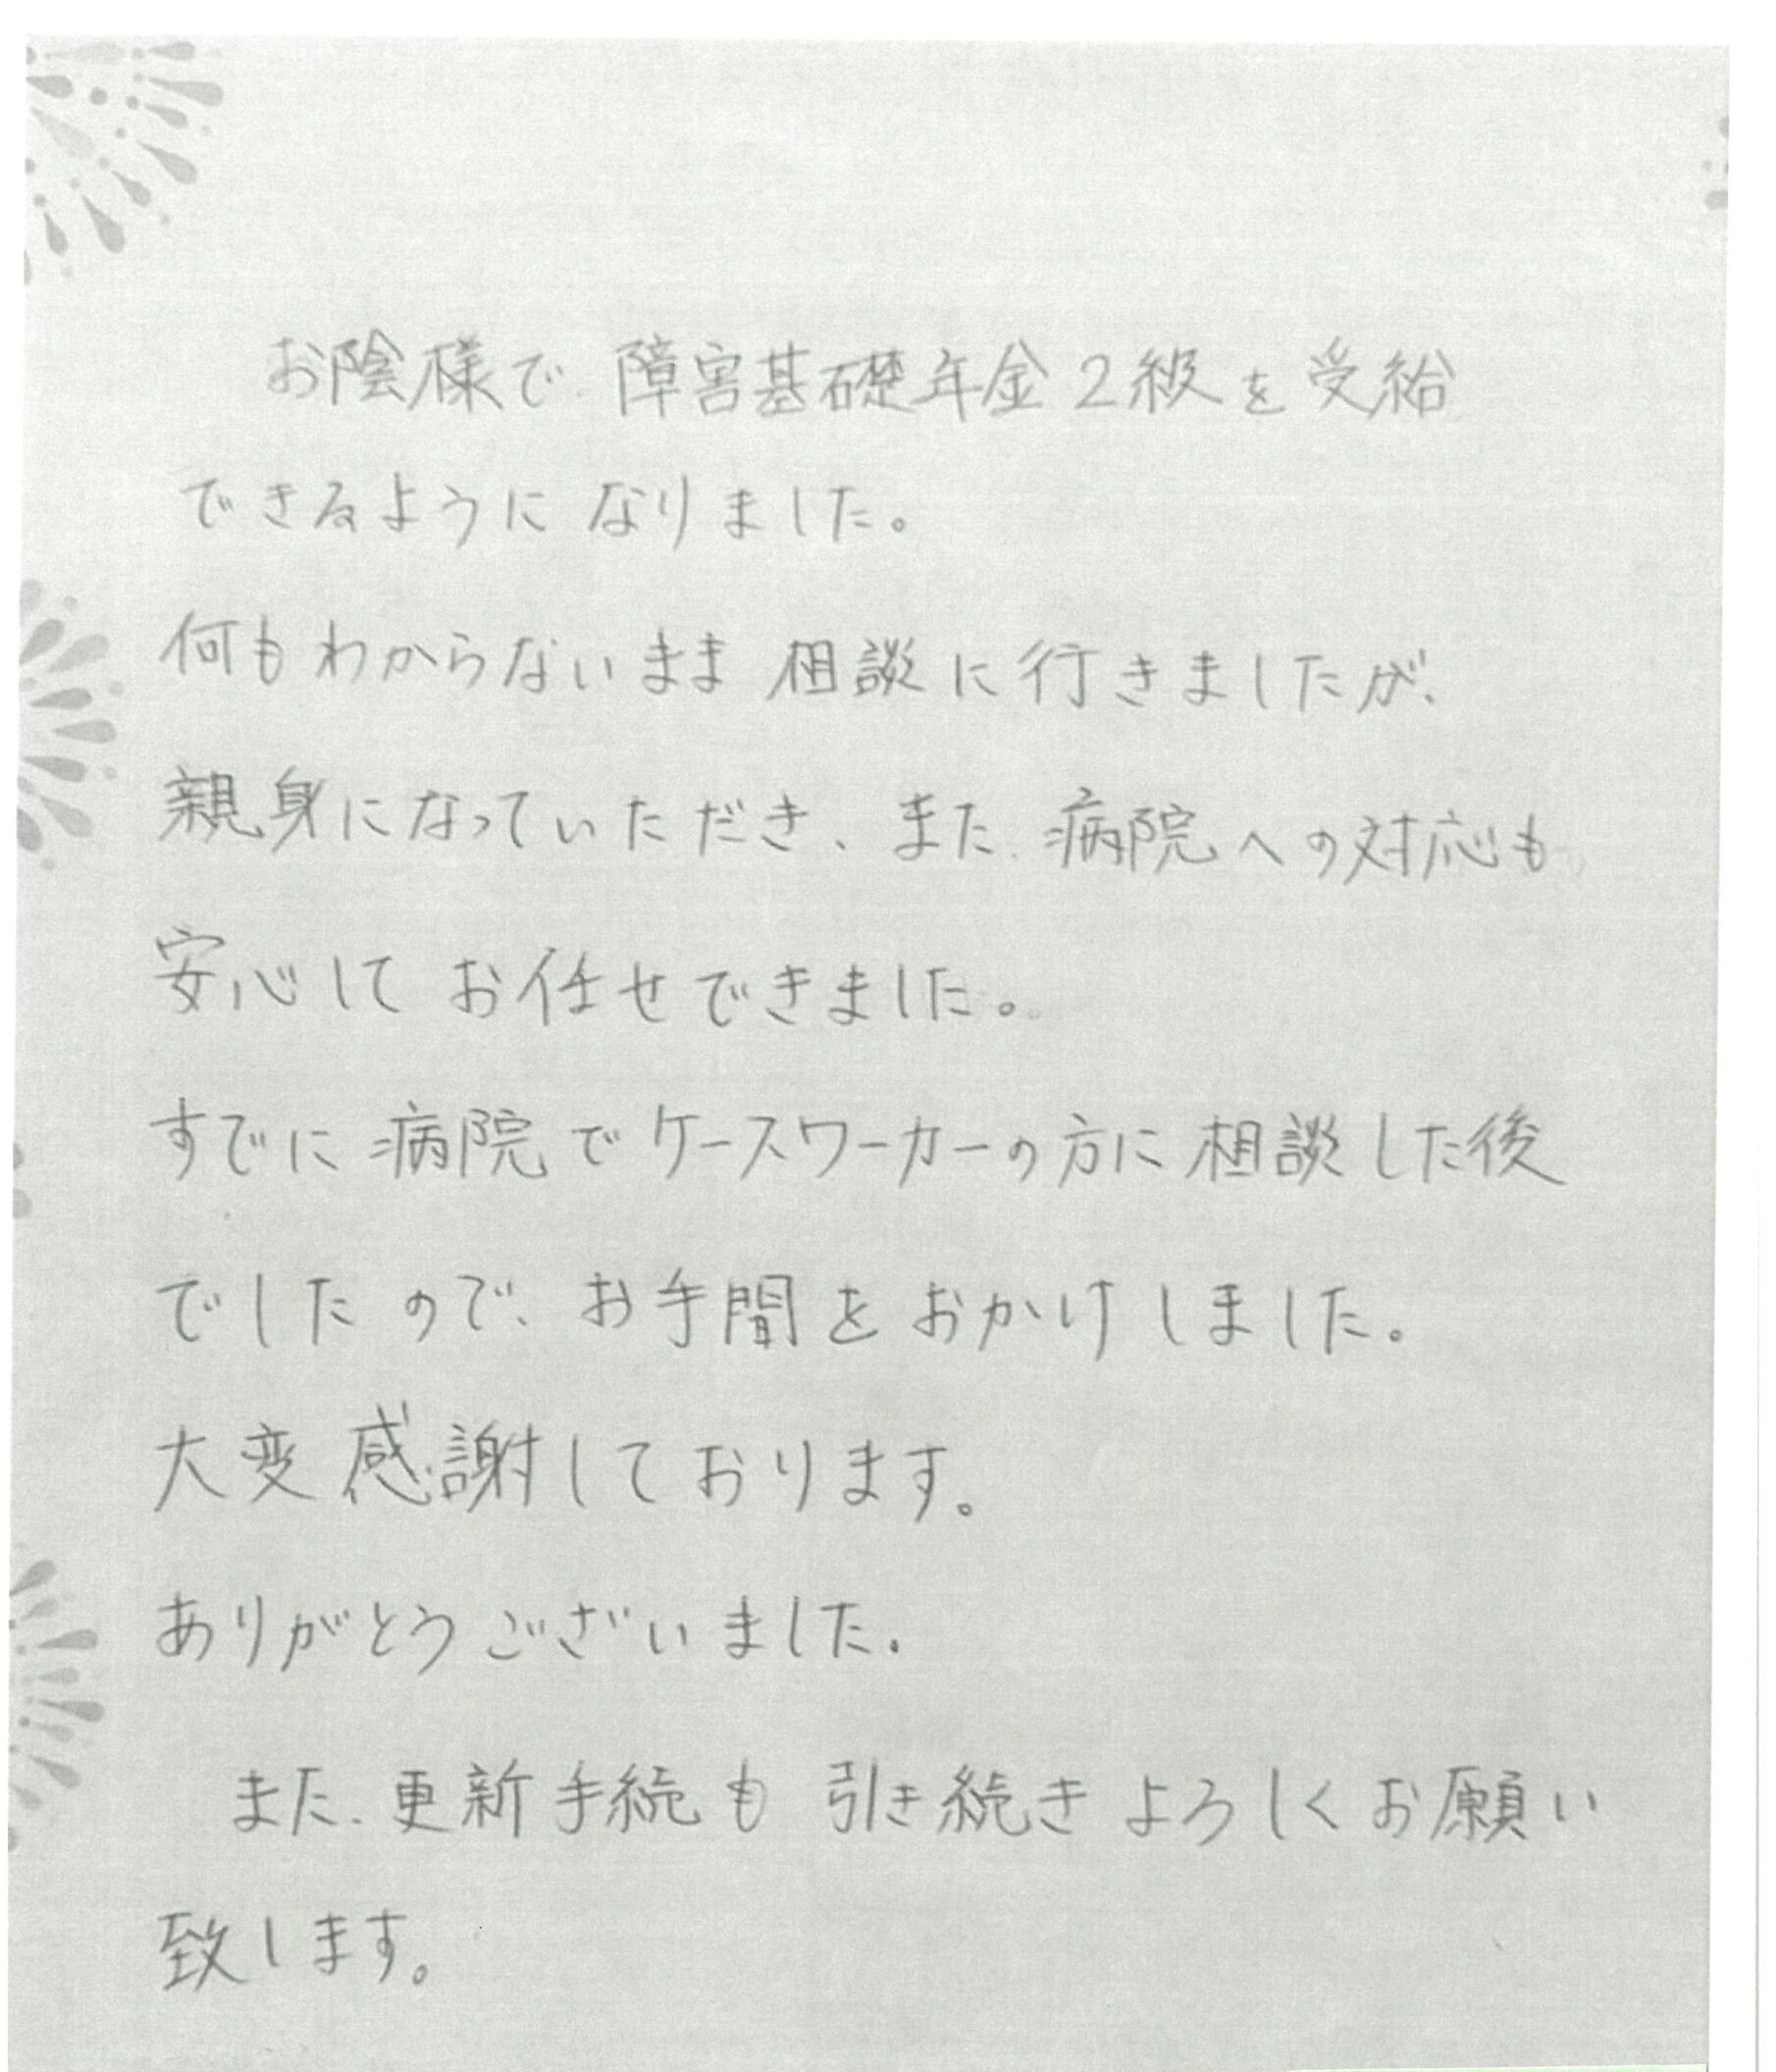 お陰様で、障害基礎年金2級を受給
できるようになりました。
何もわからないまま相談に行きましたが、
親身になっていただき、また、病院への対応も
安心してお任せできました。
すでに病院でケースワーカーの方に相談した後
でしたので、お手間をおかけしました。
大変感謝しております。
ありがとうございました。
また、更新手続も引き続きよろしくお願い
致します。